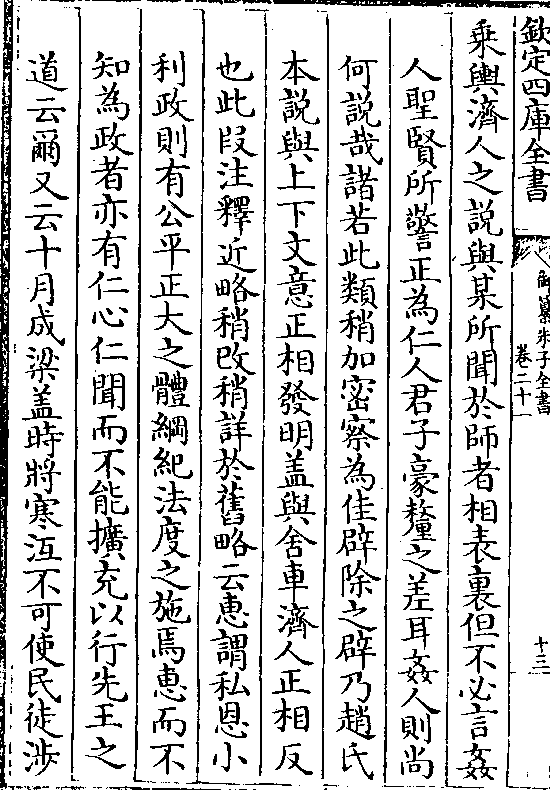 欽定四庫全書
御纂朱子全書
卷二十一
十三
乗輿濟人之説與某所聞於師者相表裏但不必言姦
人聖賢所警正為仁人君子豪釐之差耳姦人則尚
何説哉諸若此類稍加密察為佳辟除之辟乃趙氏
本説與上下文意正相發明盖與舍車濟人正相反
也此段注釋近略稍改稍詳於舊略云惠謂私恩小
利政則有公平正大之體綱紀法度之施焉惠而不
知為政者亦有仁心仁聞而不能擴充以行先王之
道云爾又云十月成梁盖時將寒沍不可使民徒涉